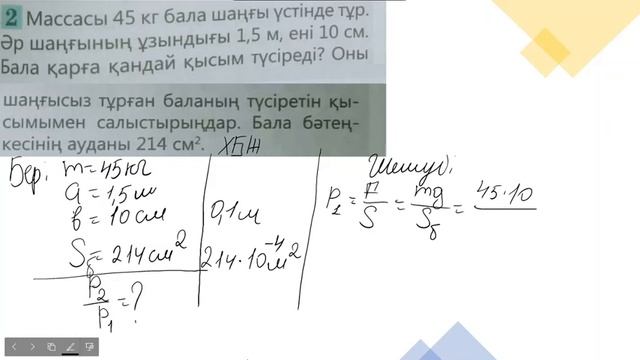 2 Массасы 45 кг бала шаңғы үстінде тұр.
Әр шаңғының ұзындығы 1,5 м, ені 10 см.
Бала қарға қандай қысым түсіреді? Оны
шаңғысыз тұрған баланың түсіретін қы-
сымымен салыстырыңдар. Бала бәтең-
кесінің ауданы 214 см².
ХБЖ
Бер: m=45кг
a=1,5м
в=10см
0,1м
Sб=214см²
214·10⁻⁴м²
P₂/P₁=?
Шешуі:
P₁=F/S=mg/Sб=45·10